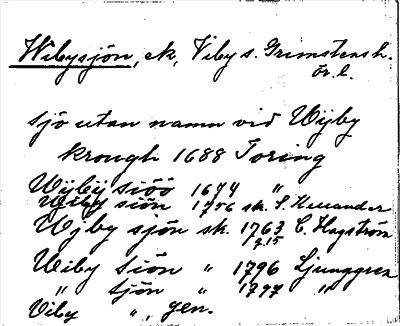 Wibysjön, ek, Viby s. Grimstens h.
ör. l.
sjö utan namn vid Wijby
krough 1688 Toring
Wijbij siöö 1674 "
Wiby siön 1756 sk. S. Kellander
Wjby sjön sk. 1763 C. Hagström
p 15
Wiby siön " 1796 Ljunggren
" sjön " 1797 "
Viby " , gen.